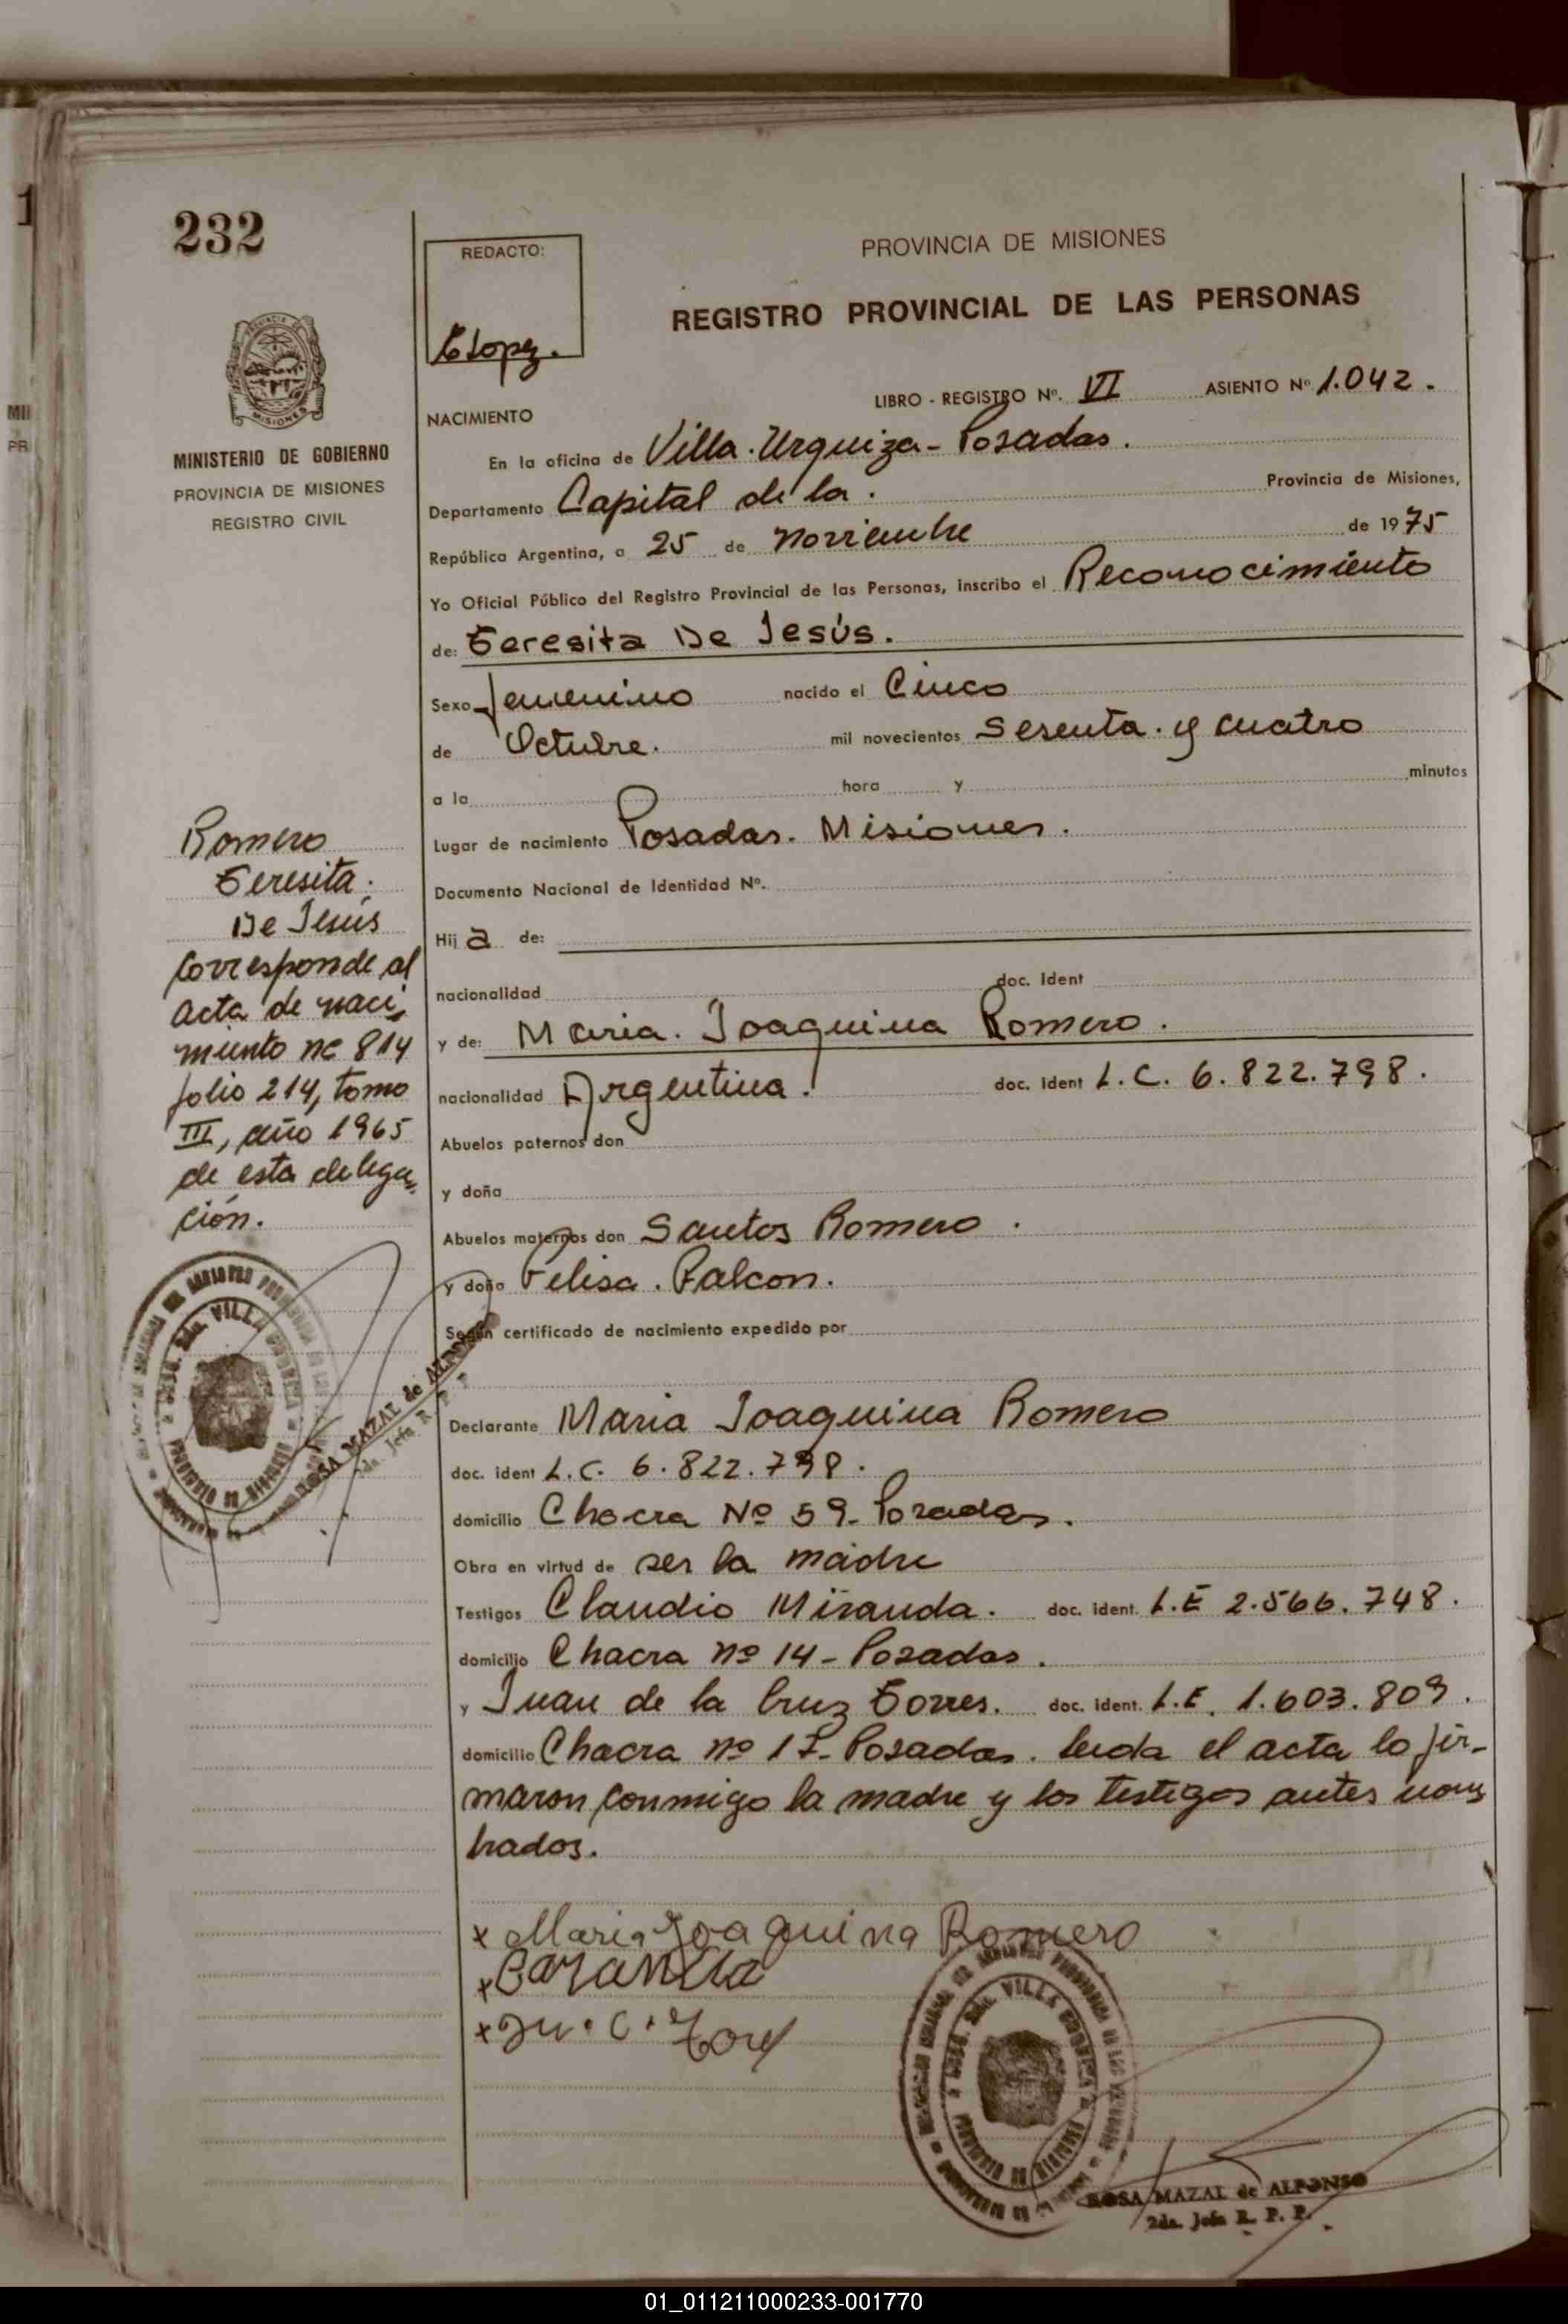 232
REDACTO:
E Lopez.
PROVINCIA DE MISIONES
REGISTRO PROVINCIAL DE LAS PERSONAS
MINISTERIO DE GOBIERNO
PROVINCIA DE MISIONES
REGISTRO CIVIL
LIBRO - REGISTRO Nº. VI ASIENTO Nº 1.042.
NACIMIENTO
En la oficina de Villa. Urquiza - Posadas.
Departamento Capital de la. Provincia de Misiones,
República Argentina, a 25 de noviembre de 1975
Yo Oficial Público del Registro Provincial de las Personas, inscribo el Reconocimiento
de: Teresita De Jesús.
Sexo femenino nacido el Cinco
de Octubre. mil novecientos Sesenta. y cuatro
a la hora y minutos
Lugar de nacimiento Posadas. Misiones.
Documento Nacional de Identidad Nº.
Hij a de:
nacionalidad doc. ident
y de: Maria. Joaquina Romero.
nacionalidad Argentina. doc. ident L.C. 6.822.798.
Abuelos paternos don
y doña
Abuelos maternos don Santos Romero.
y doña Felisa. Falcon.
Según certificado de nacimiento expedido por
Declarante Maria Joaquina Romero
doc. ident L.C. 6.822.798.
domicilio Chacra Nº 59- Posadas.
Obra en virtud de ser la madre
Testigos Claudio Miranda. doc. ident. L.E 2.566.748.
domicilio Chacra nº 14 - Posadas.
y Juan de la Cruz Torres. doc. ident. L.E. 1.603.809.
domicilio Chacra nº 17- Posadas. leida el acta lo fir-
maron conmigo la madre y los testigos antes nom
brados.
Romero
Teresita.
De Jesús
Corresponde al
acta de naci
miento nº 814
folio 214, tomo
III, año 1965
de esta delega
ción.
ROSA MAZAL de ALFONSO
2da. Jefa R. P. P.
x Maria Joaquina Romero
x
x Ju. C. Torres
VILLA URQUIZA
ROSA MAZAL de ALFONSO
2da. Jefa R. P. P.
01_011211000233-001770